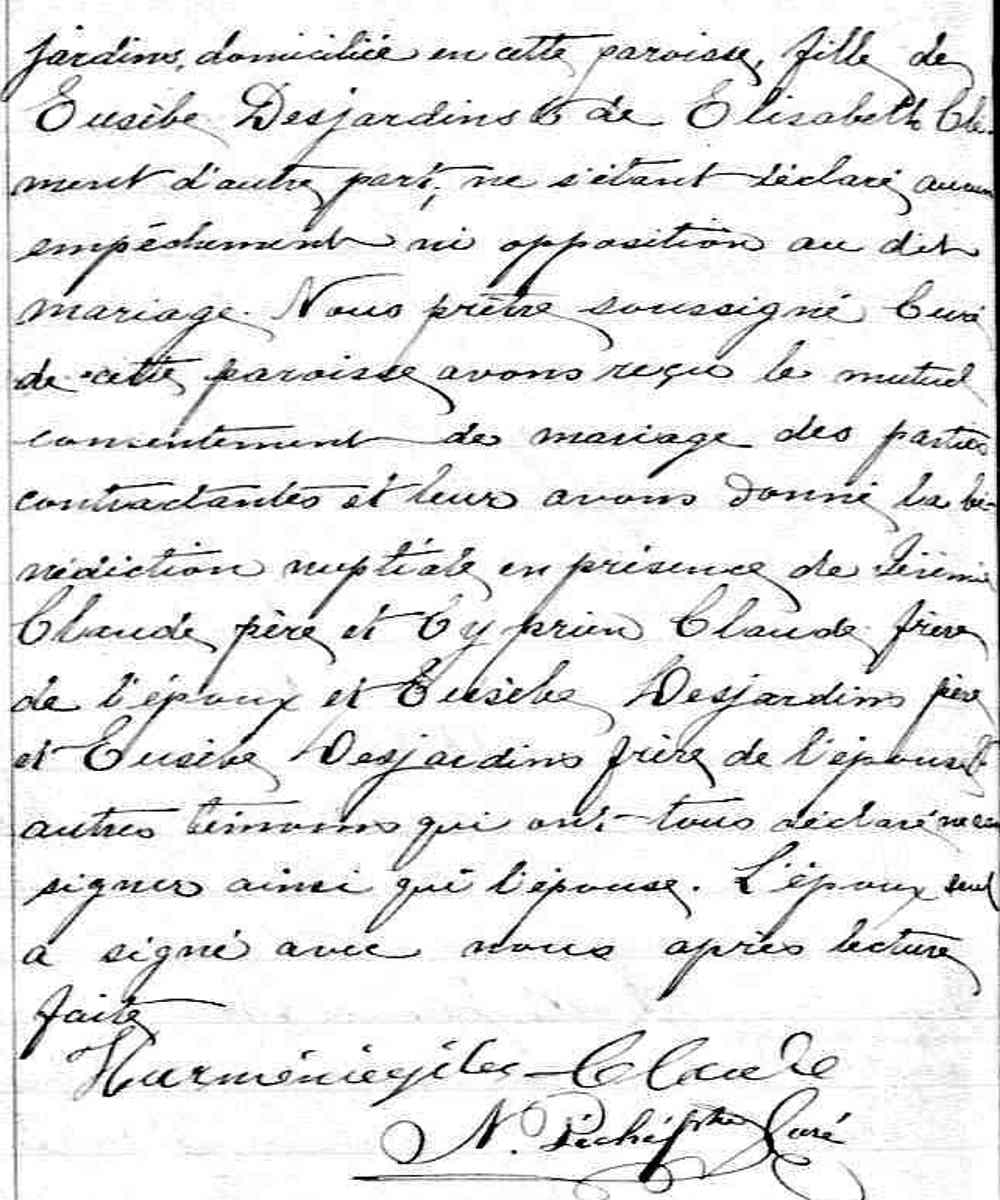 jardins, domiciliée en cette paroisse, fille de
Eusèbe Desjardins & de Elisabeth Clé-
ment d'autre part, ne s'étant déclaré aucun
empêchement ni opposition au dit
mariage. Nous prêtre soussigné Curé
de cette paroisse avons reçu le mutuel
consentement de mariage des parties
contractantes et leur avons donné la bé-
nédiction nuptiale en présence de Jérémie
Claude père et Cyprien Claude frère
de l'époux et Eusèbe Desjardins père
et Eusèbe Desjardins frère de l'épouse &
autres témoins qui ont tous déclaré ne
signer ainsi que l'épouse. L'époux seul
a signé avec nous après lecture
faite
Hurméniegiles Claude
N. Piché ptre Curé